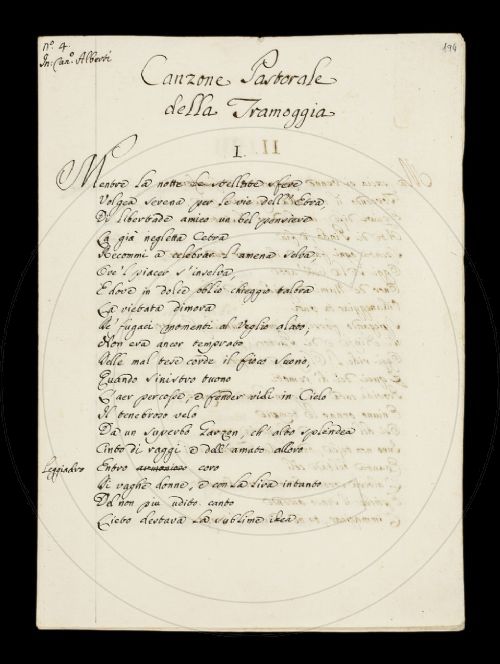 n.º 4.
In: Can.º Alberti
194
Canzone Pastorale
della Tramoggia
I.
Mentre la notte le stellate sfere
Volgea serena per le vie dell'Etra,
Di libertade amico un bel pensiere
La già negletta Cetra
Recommi a celebrar l'amena selva,
Ove 'l piacer s'inselva,
E dove in dolce oblio chieggio talora
La vietata dimora
De' fugaci momenti al Veglio alato;
Non era ancor temprato
Delle mal tese corde il fioco suono,
Quando sinistro tuono
L'aer percosse, e fender vidi in Cielo
Il tenebroso velo
Da un superbo Garzon, ch'alto splendea
Cinto di raggi e dell'amato alloro
Leggiadro
Entro armonioso coro
Di vaghe donne, e con la lira intanto
Ed non più udito canto
Lieto destava la sublime idea